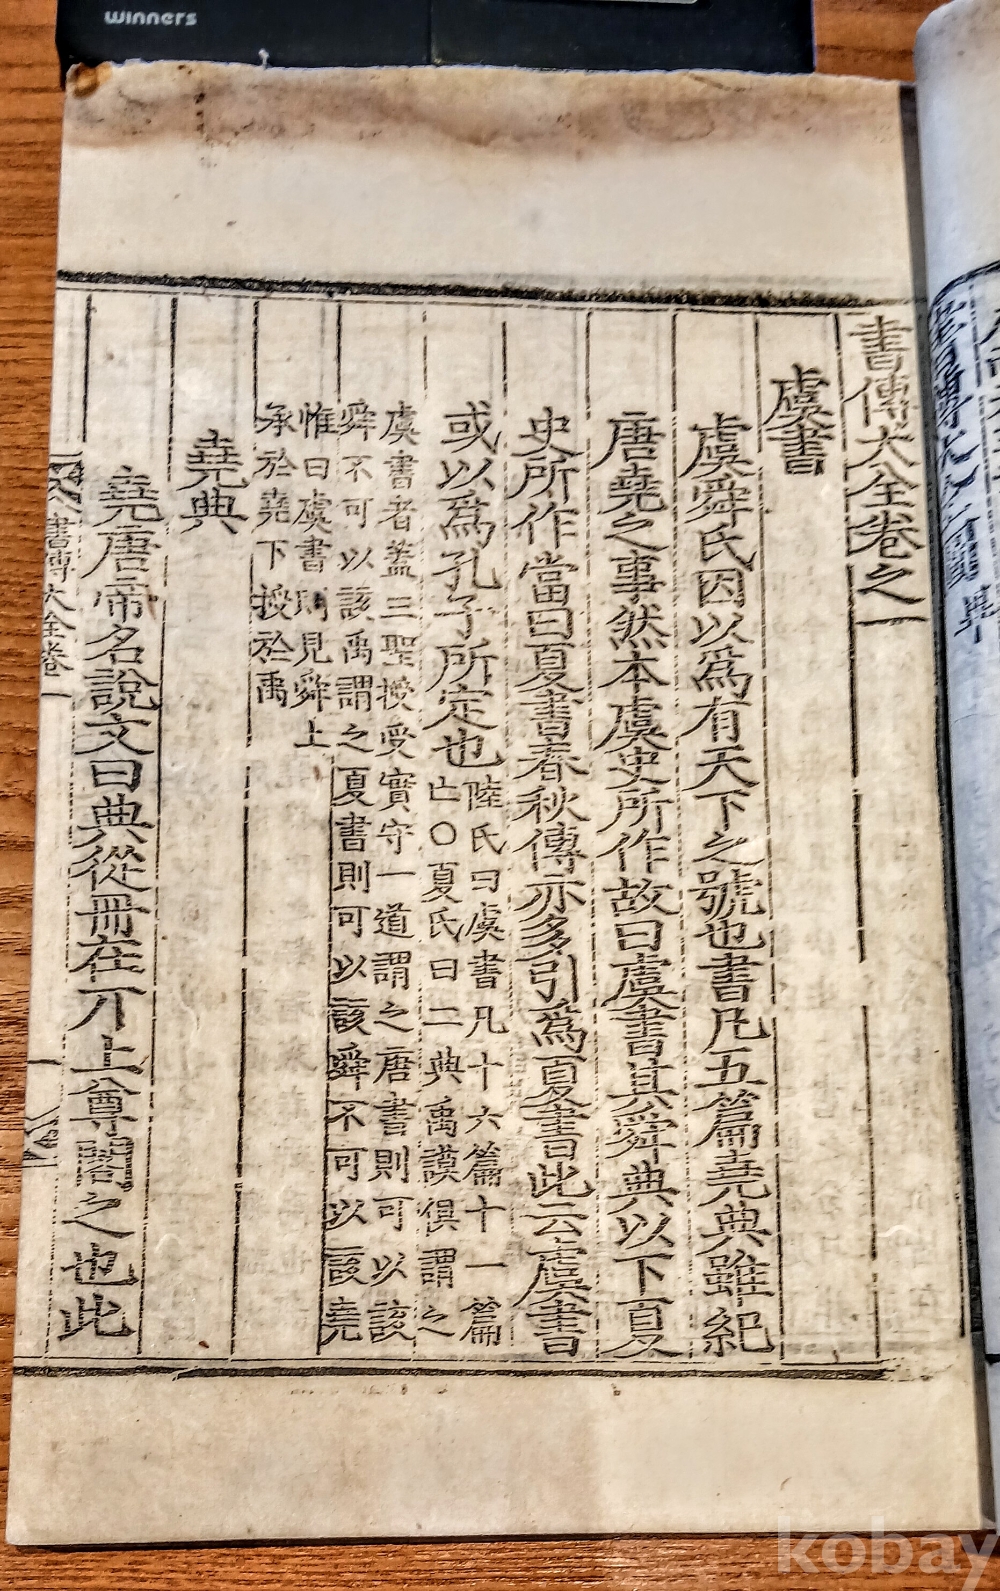 winners
書傳大全卷之一
虞書
虞舜氏因以爲有天下之號也書凡五篇堯典雖紀
唐堯之事然本虞史所作故曰虞書其舜典以下夏
史所作當曰夏書春秋傳亦多引爲夏書此云虞書
或以爲孔子所定也
陸氏曰虞書凡十六篇十一篇
亡○夏氏曰二典禹謨俱謂之
虞書者蓋三聖授受實守一道謂之唐書則可以該
舜不可以該禹謂之夏書則可以該舜不可以該堯
惟曰虞書則見舜上
承於堯下授於禹
堯典
堯唐帝名說文曰典從冊在丌上尊閣之也此
書傳大全卷一
一
kobay